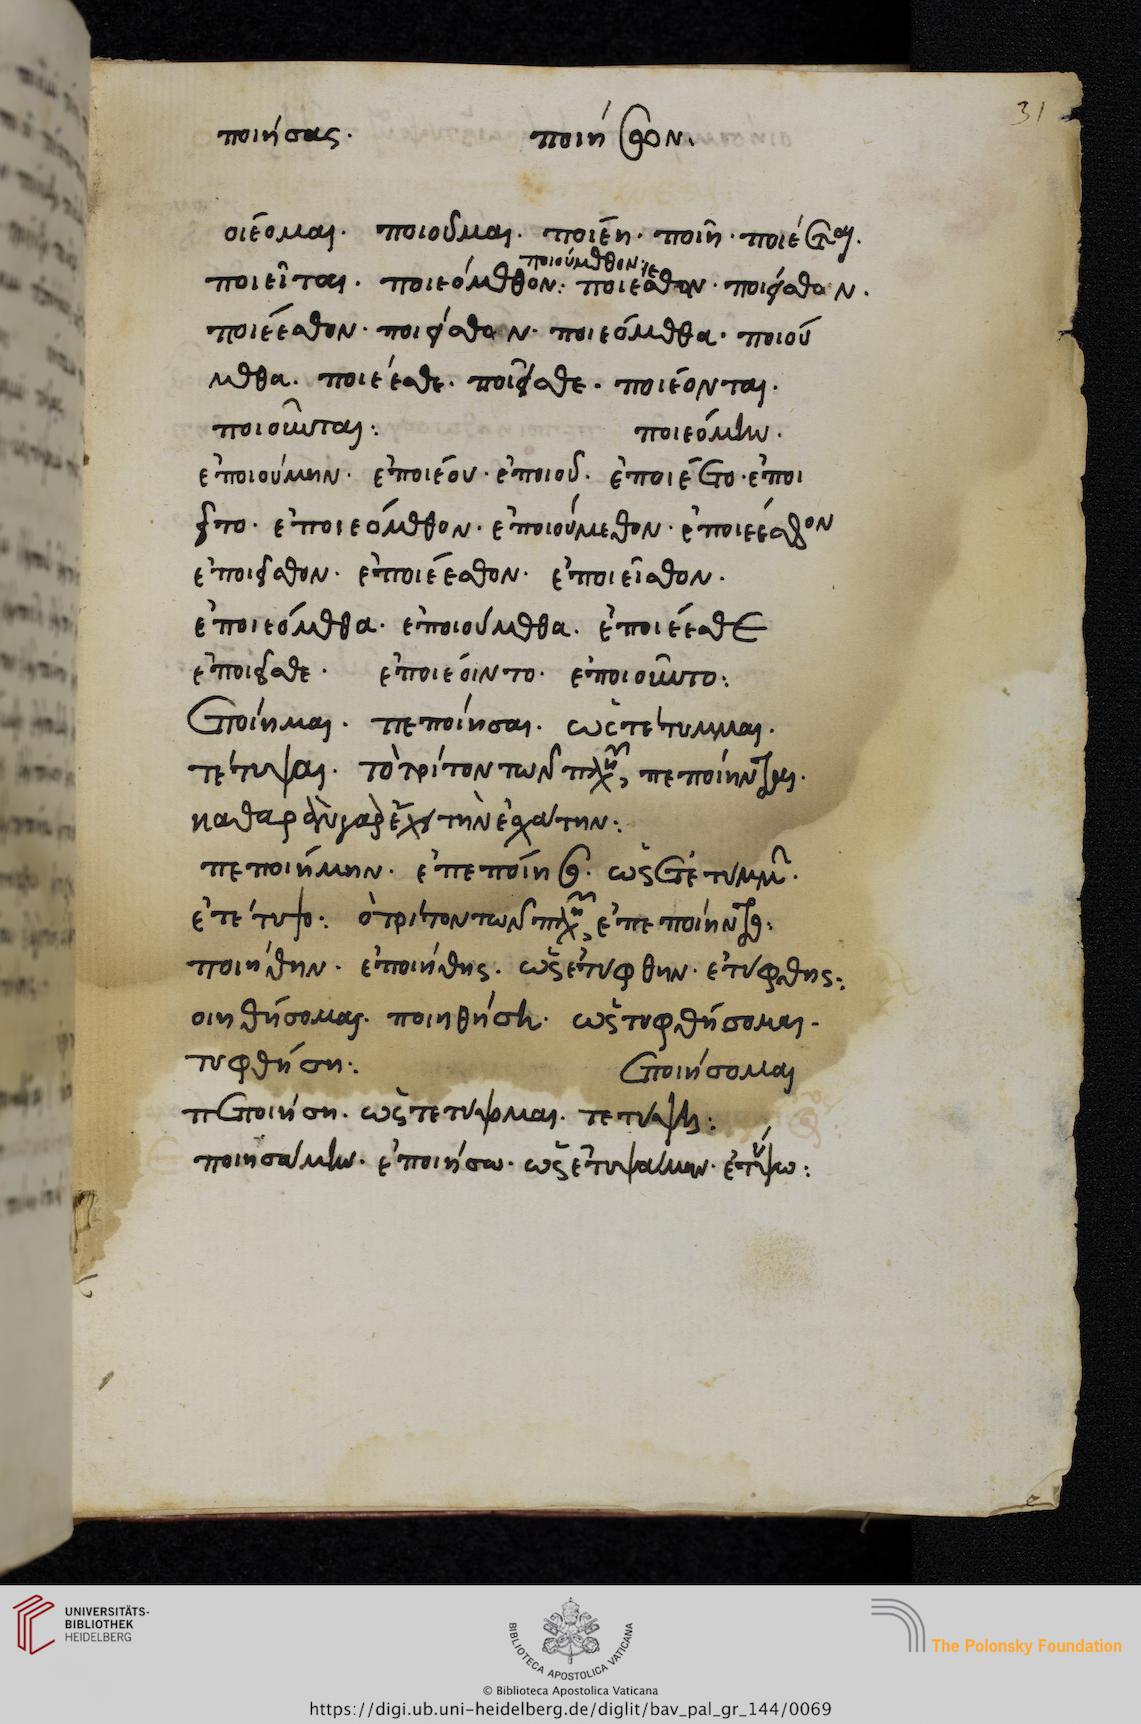 31
ποιήσας. ποιήσον.
οιέομαι. ποιοῦμαι. ποιέη. ποιῆ. ποιέεται.
ποιεῖται. ποιεόμεθον: ποιέεσθον. ποιεῖσθον.
ποιούμεθον:
ποιέεσθον. ποιεῖσθον. ποιεόμεθα. ποιού
μεθα. ποιέεσθε. ποιεῖσθε. ποιέονται.
ποιοῦνται: ποιεόμην.
ἐποιούμην. ἐποιέου. ἐποιοῦ. ἐποιέετο. ἐποι
εῖτο. ἐποιεόμεθον. ἐποιούμεθον. ἐποιέεσθον
ἐποιεῖσθον. ἐποιέεσθον. ἐποιεῖσθον.
ἐποιεόμεθα. ἐποιούμεθα. ἐποιέεσθε
ἐποιεῖσθε. ἐποιέοιντο. ἐποιοῦντο:
εποίημαι. πεποίησαι. ὡς τέτυμμαι.
τέτυψαι. τὸ τρίτον τῶν πληθ, πεποίηνται.
καθαρὰν γὰρ ἔχει τὴν ἐσχάτην:
πεποιήμην. ἐπεποίησο. ὡς ἐτετύμμην.
ἐτέτυψο: ὁ τρίτον τῶν πληθ, ἐπεποίηντο:
ποιήθην. ἐποιήθης. ὡς ἐτύφθην. ἐτύφθης:
οιηθήσομαι. ποιηθήση. ὡς τυφθήσομαι.
τυφθήση: εποιήσομαι
πεποιήση. ὡς τετύψομαι. τετύψη:
ποιησάμην. ἐποιήσω. ὡς ἐτυψάμην. ἐτύψω:
UNIVERSITÄTS-
BIBLIOTHEK
HEIDELBERG
BIBLIOTECA APOSTOLICA VATICANA
The Polonsky Foundation
© Biblioteca Apostolica Vaticana
https://digi.ub.uni-heidelberg.de/diglit/bav_pal_gr_144/0069